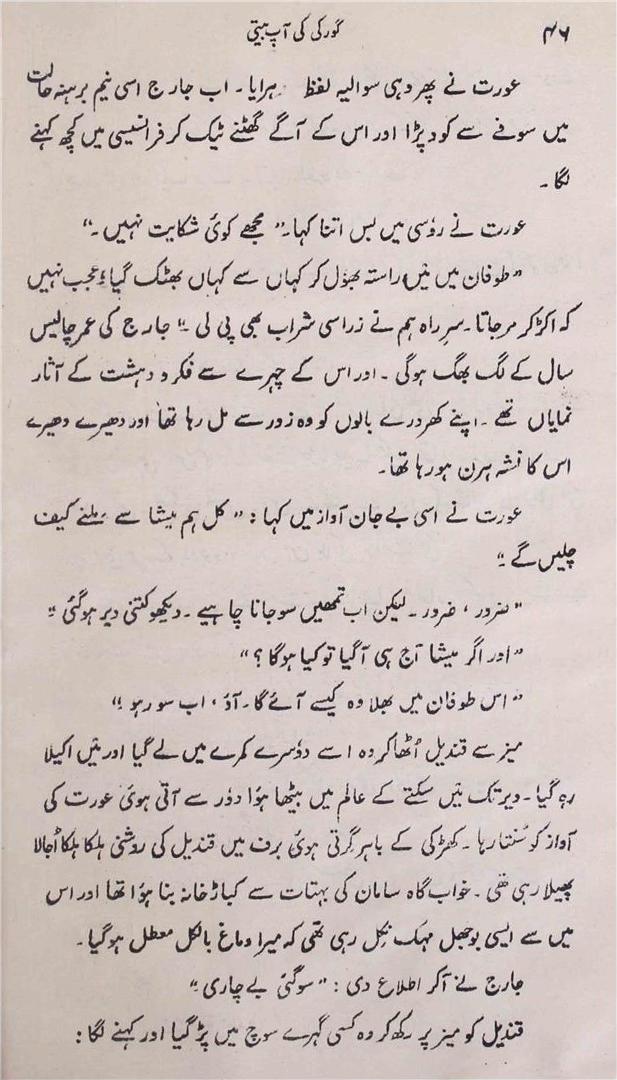 ۴۶
گورکی کی آپ بیتی
عورت نے پھر وہی سوالیہ لفظ دہرایا۔ اب جارج اسی نیم برہنہ حالت
میں سوفے سے کود پڑا اور اس کے آگے گھٹنے ٹیک کر فرانسیسی میں کچھ کہنے
لگا۔
عورت نے روٗسی میں بس اتنا کہا۔ “مجھے کوئی شکایت نہیں۔”
“طوفان میں مَیں راستہ بھوٗل کر کہاں سے کہاں بھٹک گیا، عجب نہیں
کہ اکڑ کر مر جاتا۔ سرِ راہ ہم نے ذرا سی شراب بھی پی لی۔” جارج کی عمر چالیس
سال کے لگ بھگ ہوگی۔ اور اس کے چہرے سے فکر و دہشت کے آثار
نمایاں تھے۔ اپنے کھردرے بالوں کو وہ زور سے مل رہا تھا اور دھیرے دھیرے
اس کا نشہ ہرن ہو رہا تھا۔
عورت نے اسی بے جان آواز میں کہا : “کل ہم میشا سے ملنے کیف
چلیں گے۔”
“ضرور، ضرور۔ لیکن اب تمھیں سو جانا چاہیے۔ دیکھو کتنی دیر ہوگئی۔”
“اور اگر میشا آج ہی آگیا تو کیا ہوگا؟”
“اس طوفان میں بھلا وہ کیسے آئے گا۔ آؤ، اب سو رہو۔”
میز سے قندیل اُٹھا کر وہ اسے دوٗسرے کمرے میں لے گیا اور مَیں اکیلا
رہ گیا۔ دیر تک مَیں سکتے کے عالم میں بیٹھا ہوٗا دوٗر سے آتی ہوئی عورت کی
آواز کو سُنتا رہا۔ کھڑکی کے باہر گِرتی ہوئی برف میں قندیل کی روشنی ہلکا ہلکا اُجالا
پھیلا رہی تھی۔ خواب گاہ سامان کی بہتات سے کباڑ خانہ بنا ہوٗا تھا اور اس
میں سے ایسی بوجھل مہک نِکل رہی تھی کہ میرا دماغ بالکل معطل ہو گیا۔
جارج نے آکر اطلاع دی : “سو گئی بے چاری۔”
قندیل کو میز پر رکھ کر وہ کسی گہرے سوچ میں پڑ گیا اور کہنے لگا :